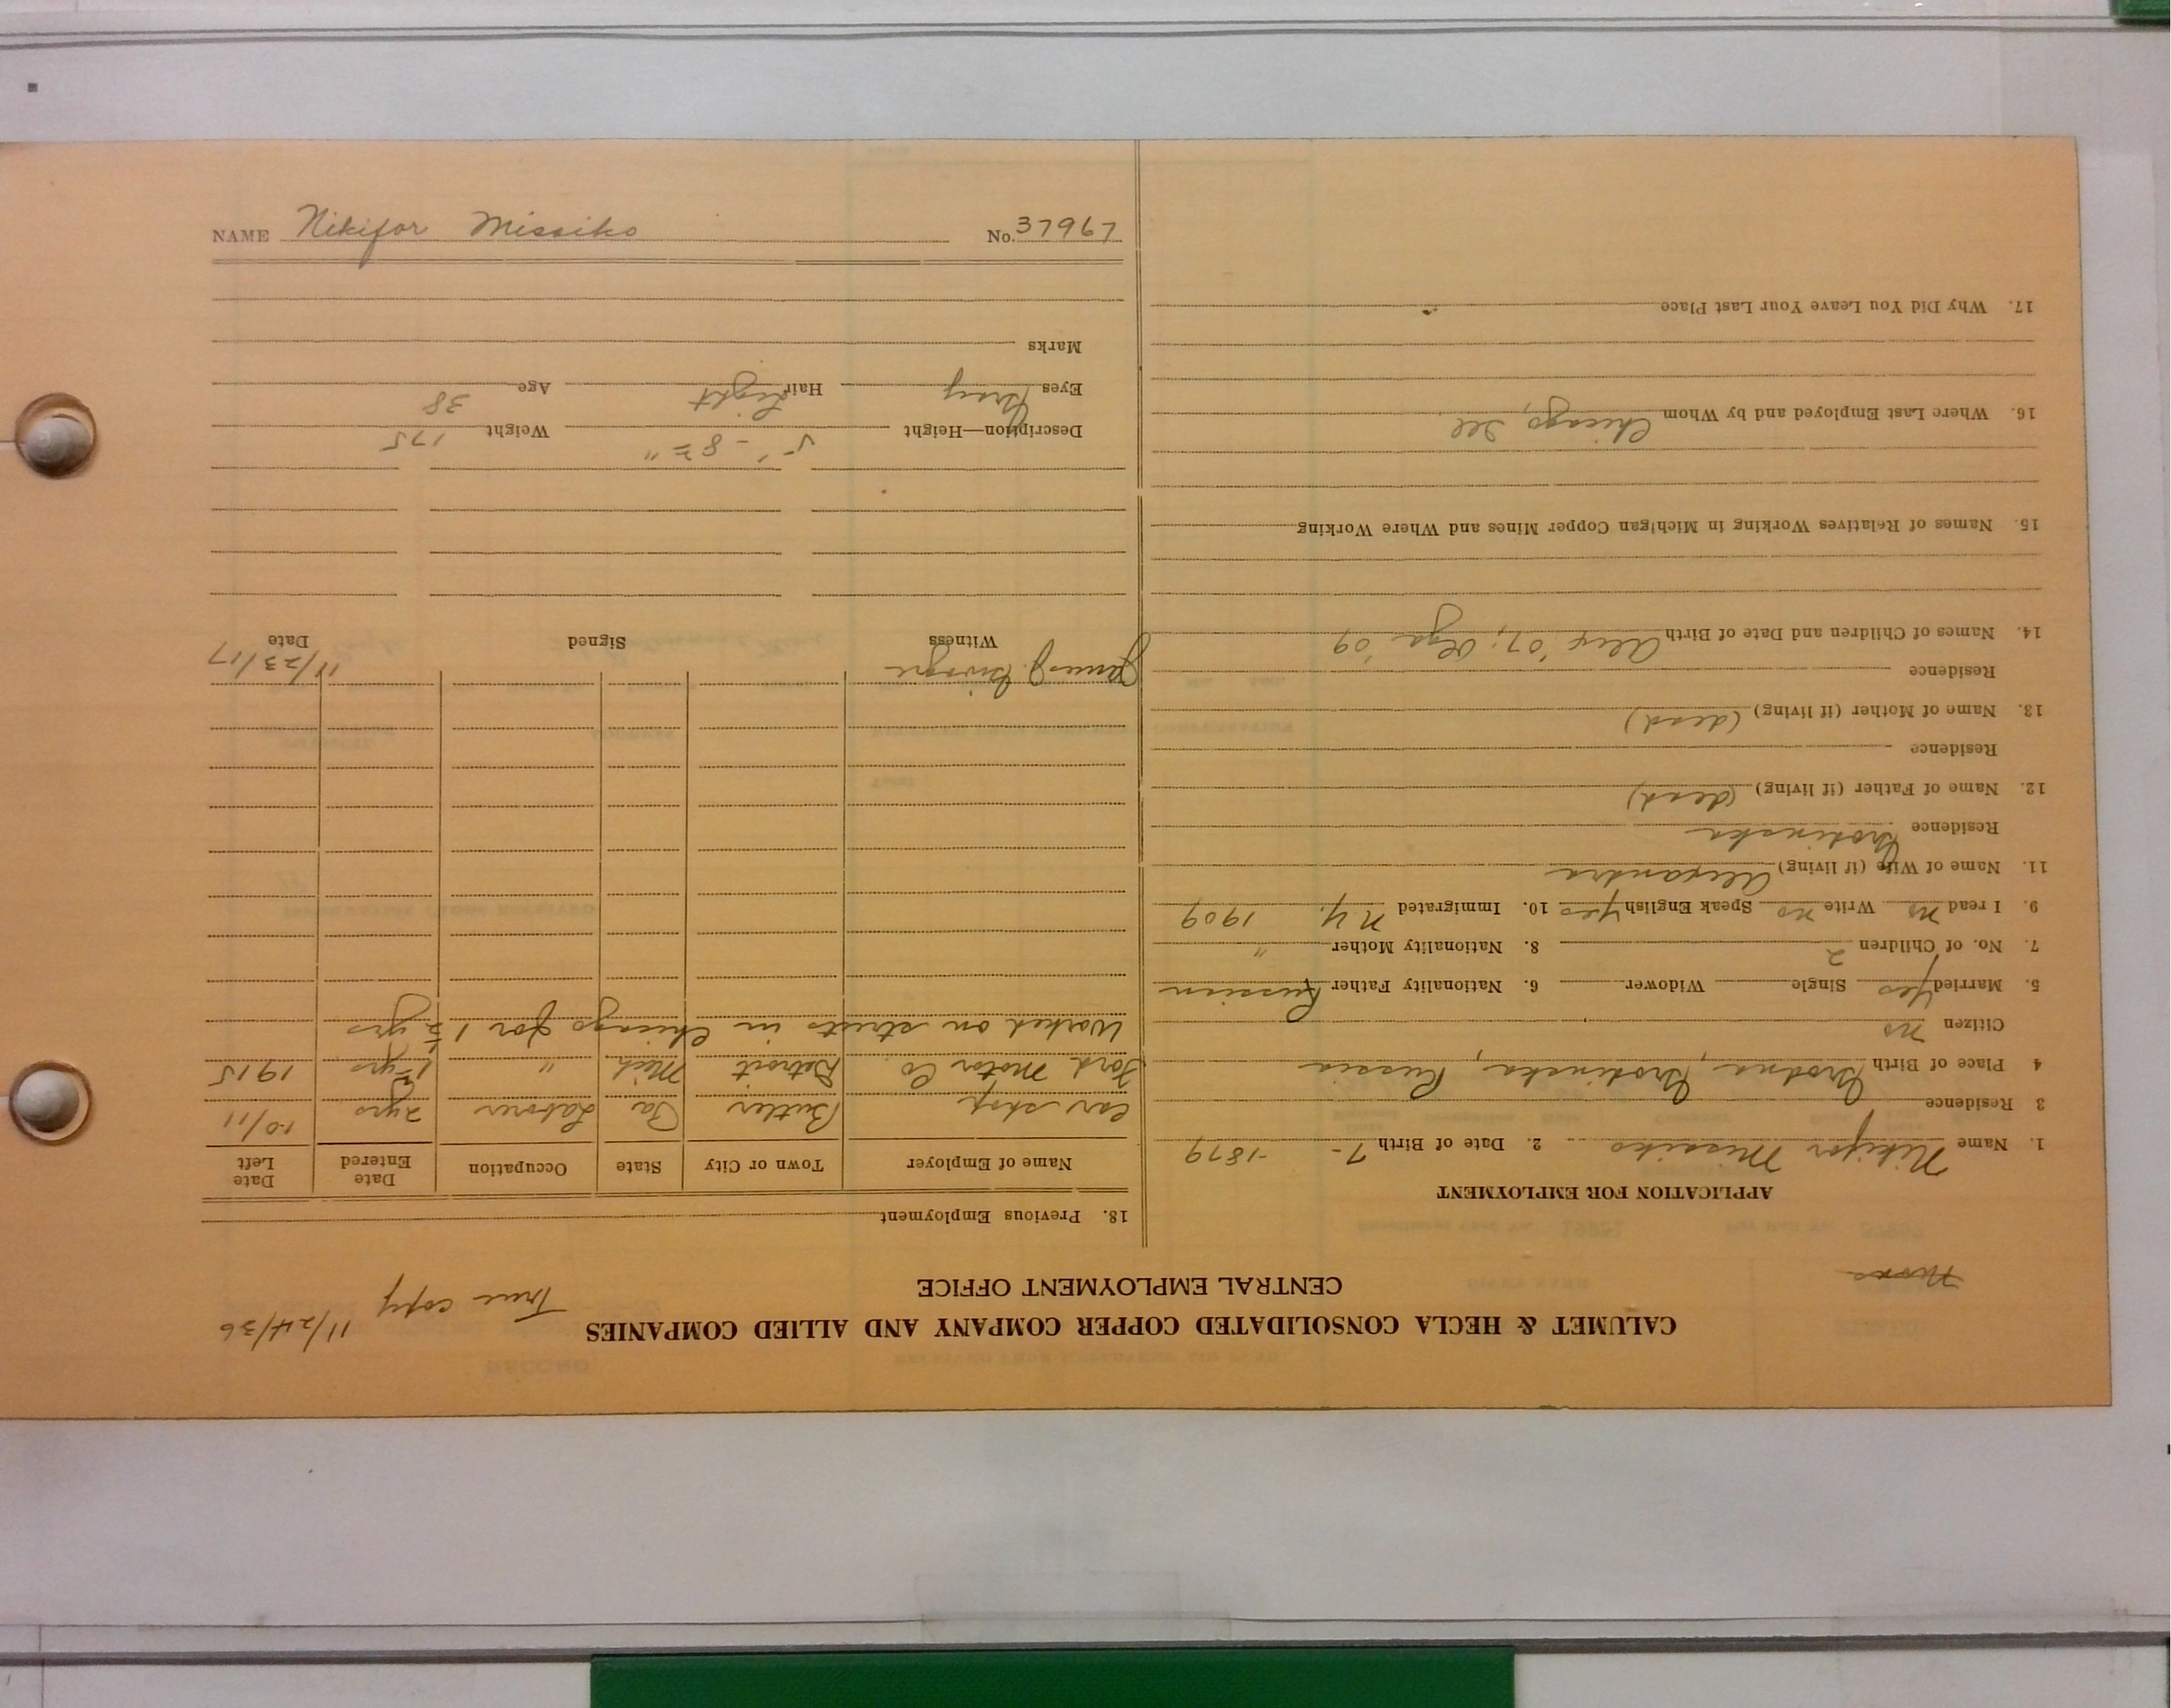 CALUMET & HECLA CONSOLIDATED COPPER COMPANY AND ALLIED COMPANIES
CENTRAL EMPLOYMENT OFFICE
True copy 11/24/36
APPLICATION FOR EMPLOYMENT
1. Name Nikifor Missiko 2. Date of Birth 7- -1879
3 Residence
4 Place of Birth Grodna, Grodinska, Russia
Citizen no
5. Married Yes Single Widower 6. Nationality Father Russian
7. No. of Children 2 8. Nationality Mother "
9. I read no Write no Speak English Yes 10. Immigrated N.Y. 1909
11. Name of Wife (if living) Alexandra
Residence Grodinska
12. Name of Father (if living) (dead)
Residence
13. Name of Mother (if living) (dead)
Residence
14. Names of Children and Date of Birth Alex '07; Olga '09
15. Names of Relatives Working in Michigan Copper Mines and Where Working
16. Where Last Employed and by Whom Chicago, Ill
17. Why Did You Leave Your Last Place
18. Previous Employment
Name of Employer Town or City State Occupation Date Entered Date Left
Car shop Butler Pa Laborer 2 yrs 10/11
Ford Motor Co. Detroit Mich " 1 1/2 yrs 1915
Worked on streets in Chicago for 1 1/2 yrs
James J. 11/23/17
Witness Signed Date
Description—Height 5' - 8 1/2" Weight 175
Eyes Gray Hair Light Age 38
Marks
NAME Nikifor Missiko No. 37967